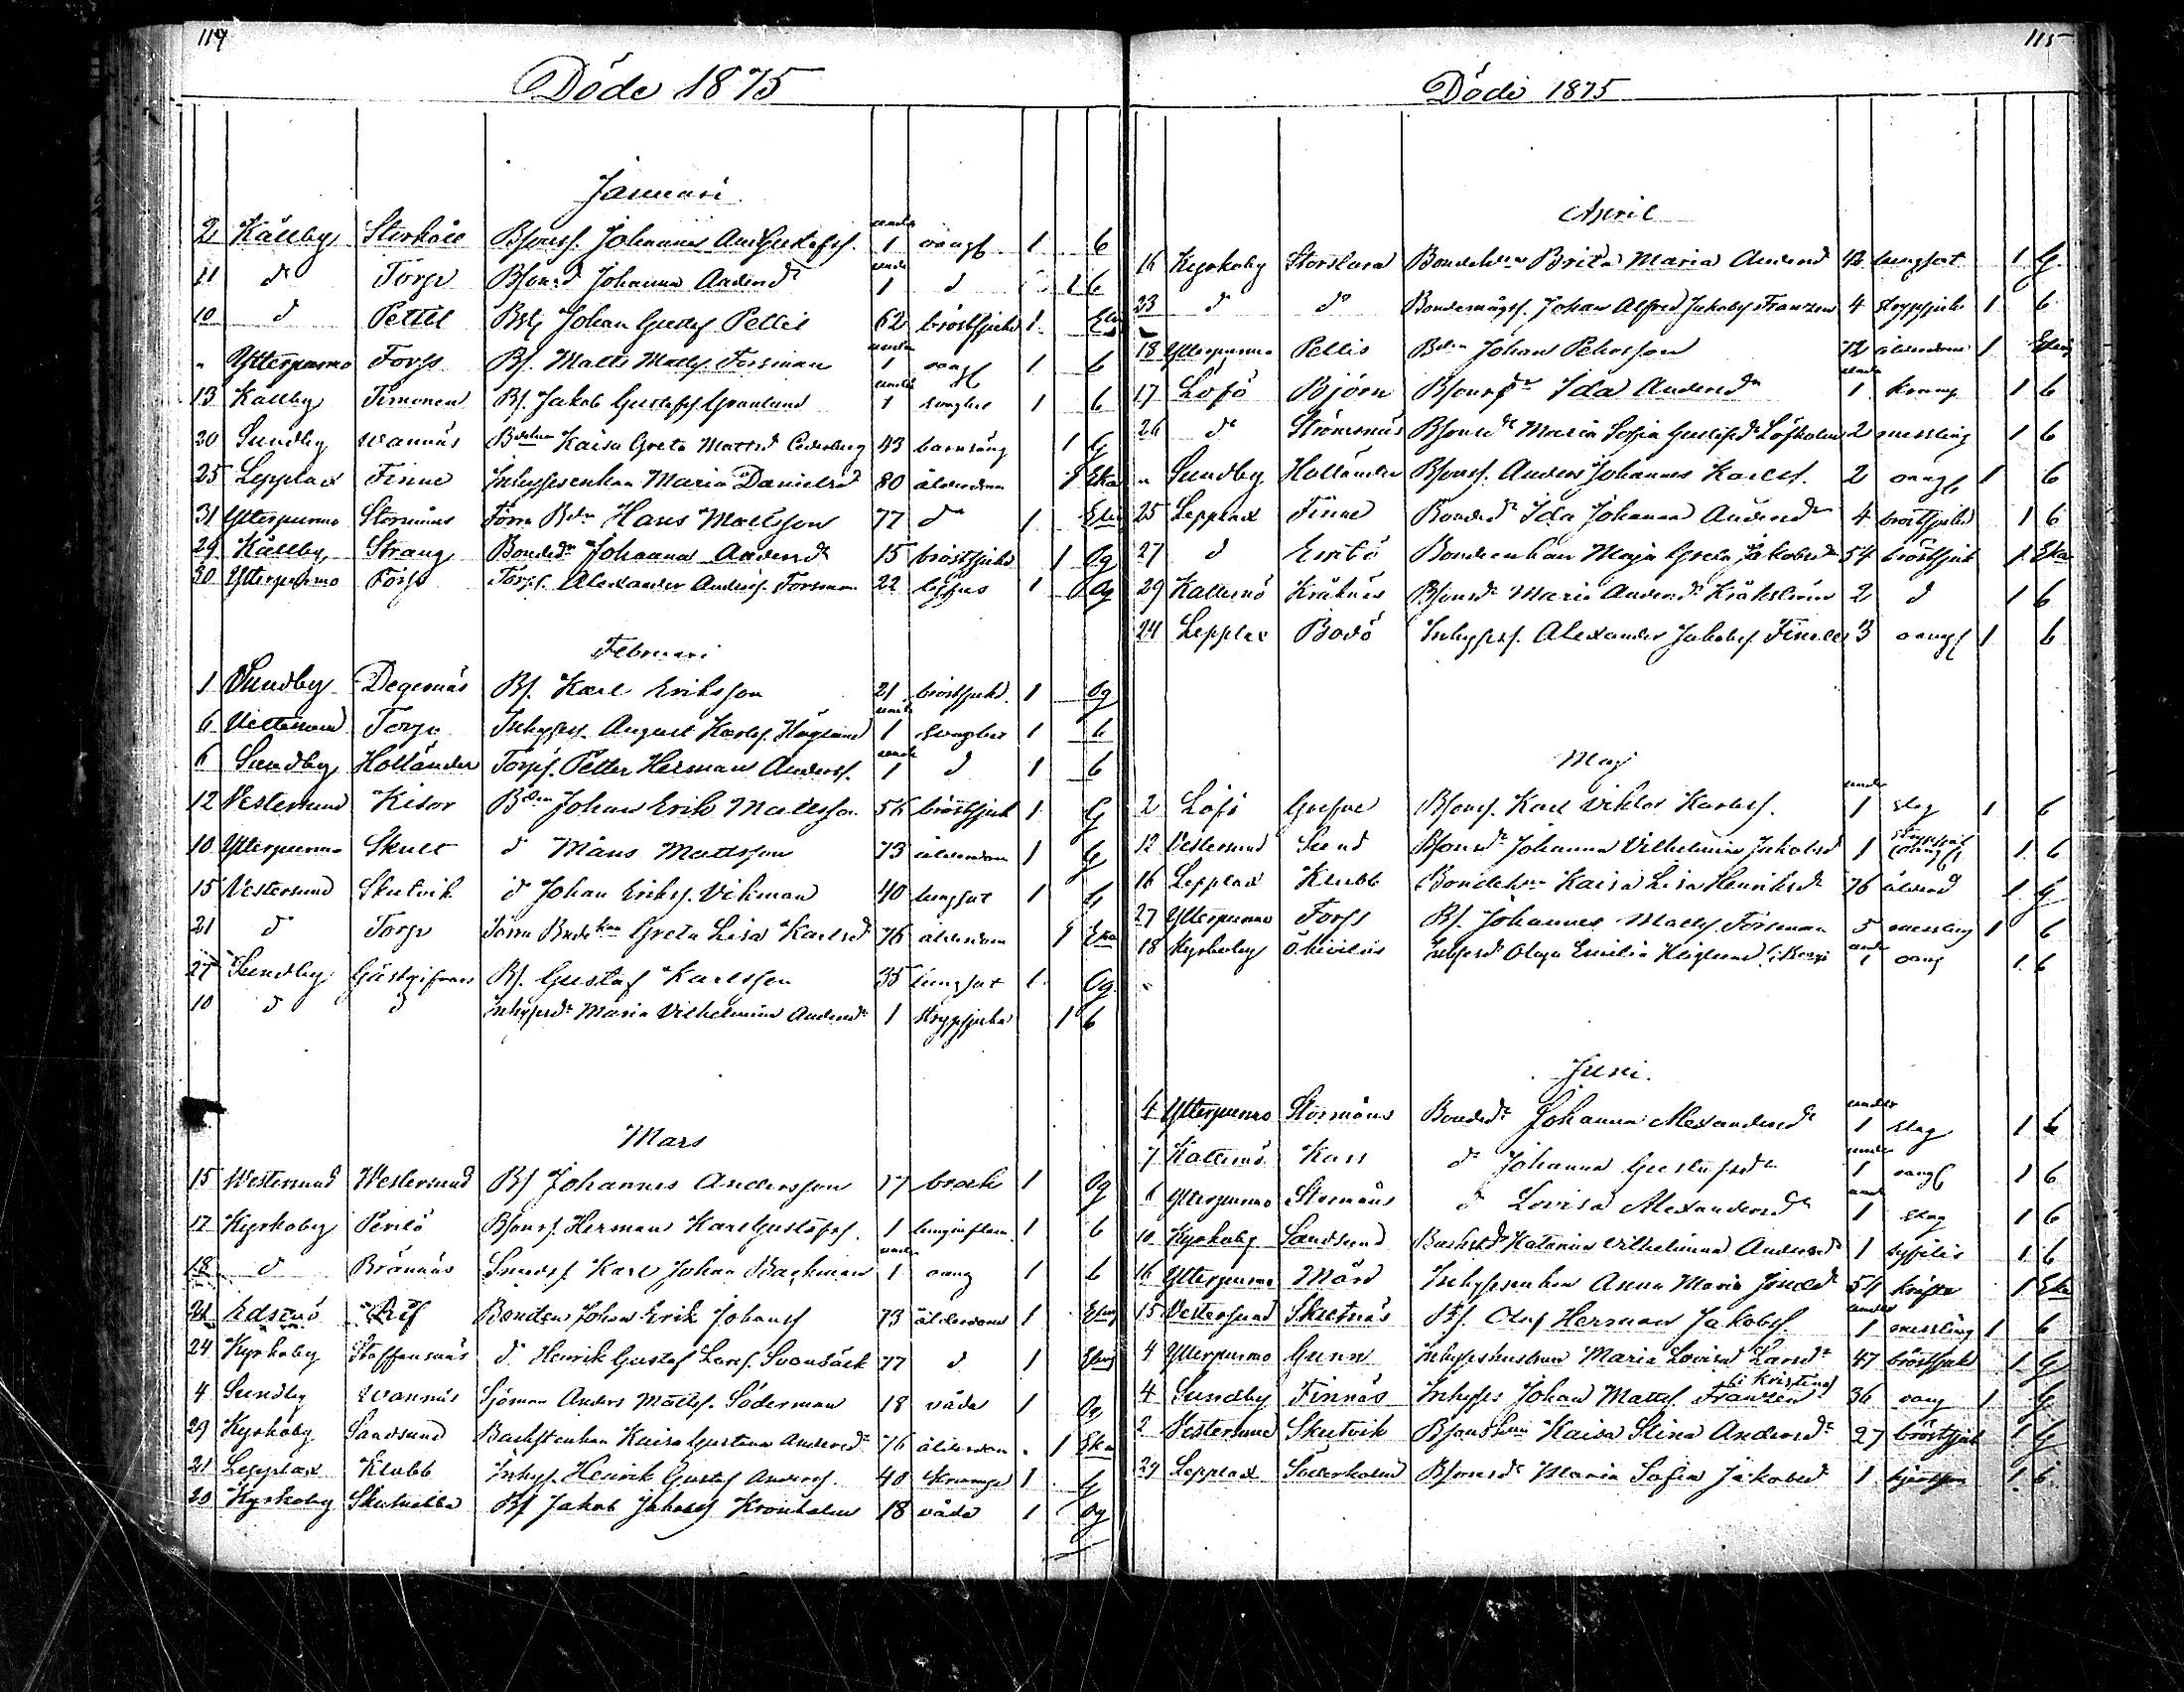 114
Döde 1875
Januari
2 Källby Storkåll Bsonss. Johannes And. Gustafss. under 1 oangf 1 b
11 do Torp Bsonsd Johanna Andersdr under 1 d 1 b
10 d Pettil Bdn Johan Gustaf Pettil 62 bröstsjukd 1 Elin
" Ytterpurmo Forss Bs. Matts Mattss. Forsman under 1 oangf 1 b
13 Källby Timonen Bs. Jakob Gustafss Granlund under 1 svaghet 1 b
20 Sundby Wannäs Bdehun Kaisa Greta Mattsd Cederberg 43 barnsäng 1 G
25 Lepplax Finne Inhysesenkan Maria Danielsd 80 ålderdom 1 Eka
31 Ytterpurmo Stormåns Förra Bdn Hans Mattsson 77 do 1 Elin
29 Källby Strang Bondedr Johanna Andersdr 15 bröstsjukd 1 Og
30 Ytterpurmo Forss Torps. Alexander Anderss. Forsman 22 tyfus 1 Og
Februari
1 Sundby Degernäs Bs. Karl Eriksson 21 bröstsjukd. 1 Og
6 Vestersund Torp Inhysess. August Karlss. Höglund under 1 svaghet 1 b
6 Sundby Holländer Torps. Petter Herman Anderss. under 1 d 1 b
12 Vestersund Kisor Bdn Johan Erik Mattsson 56 bröstsjuk 1 G
10 Ytterpurmo Skult d Måns Mattsson 73 ålderdom 1 G
15 Vestersund Skutvik d Johan Erikss. Vikman 40 lungsot 1 G
21 do Torp Förra Bndekan Greta Lisa Karlsd 76 ålderdom 1 Eka
27 Sundby Gästgifvars Bs. Gustaf Karlsson 35 lungsot 1 Og
10 d d Inhysesdr Maria Vilhelmina Andersdr 1 strypsjuka 1 b
Mars
15 Westersund Westersund Bs Johannes Andersson 17 brock 1 Og
17 Kyrkoby Perilö Bsonss. Herman Karl Gustafss. 1 lunginflam. 1 b
18 d Brännäs Smedss. Karl Johan Backman under 1 oang 1 b
21 Edsevö Rif Bonden Johan Erik Johanss 73 ålderdom 1 Eling
24 Kyrkoby Staffansnäs d Henrik Gustaf Larss. Svanbäck 77 d 1 Eling
4 Sundby Wannäs Sjöman Anders Mattss. Söderman 18 våda 1 Og
29 Kyrkoby Sandsund Backstenkan Kaisa Gustava Andersdr 76 ålderdom 1 Eka
21 Lepplax Klubb Inhys. Henrik Gustaf Anderss. 40 kramp 1 G
20 Kyrkoby Skutnabba Bs Jakob Jakobss Kronholm 18 våda 1 Og
115
Döde 1875
April
16 Kyrkoby Storslara Bondehun Brita Maria Andersd 42 lungsot 1 G
23 d do Bondemågss. Johan Alfred Jakobss Franzen 4 strypsjuk 1 b
18 Ytterpurmo Pellis Bdn Johan Pehrsson 72 ålderdom 1 Eling
17 Lofö Björn Bsonsdr Ida Andersdr under 1 kramp 1 b
26 do Strömsnäs Bsonsdr Maria Sofia Gustafsdr Löfholm 2 messling 1 b
" Sundby Holländer Bsonss. Anders Johannes Karlss. 2 oangf 1 b
25 Lepplax Finne Bondedr Ida Johanna Andersdr 4 bröstsjukd 1 b
27 d Eritö Bondeenkan Maja Greta Jakobsdr 54 bröstsjuk 1 Eka
29 Katternö Kråknäs Bsonsdr Maria Andersdr Kråkström 2 d 1 b
24 Lepplax Bodö Inhysess. Alexander Jakobss Finell 3 oangf 1 b
Maj
2 Löfö Gref Bsonss. Karl Viktor Karlss. under 1 slag 1 b
12 Vestersund Sund Bsonsdr Johanna Vilhelmina Jakobsd 1 strypsjuk (oangf) 1 b
16 Lepplax Klubb Bondehun Kaisa Lisa Henriksdr 76 ålderd 1 G
27 Ytterpurmo Forss Bs. Johannes Mattss. Forsman 5 messling 1 b
18 Kyrkoby Inhysesd Olga Emilia Höglund under 1 oang 1 b
Juni.
4 Ytterpurmo Stormåns Bondedr Johanna Alexandersdr under 1 slag 1 b
7 Katternö Kass do Johanna Gustafsdr under 1 oangf 1 b
6 Ytterpurmo Stormåns d Lovisa Alexandersdr under 1 slag 1 b
10 Kyrkoby Sandsund Backstdr Katarina Vilhelmina Andersdr 1 syfilis 1 b
16 Ytterpurmo Mård Inhysesenkan Anna Maria Jönsd 54 kräfta 1 Eka
15 Vestersund Skutnäs Bs. Olof Herman Jakobss under 1 messling 1 b
4 Ytterpurmo Gunn Inhyseshustrun Maria Lovisa Larsdr 47 bröstsjukd 1 G
4 Sundby Finnäs Inhyses Johan Mattss. Franzen (i Kristina) 36 oang 1 G
2 Vestersund Skutvik Bsonshun Kaisa Stina Andersdr 27 bröstsjuk 1 G
29 Lepplax Söderholm Bsonsdr Maria Sofia Jakobsd 1 1 b